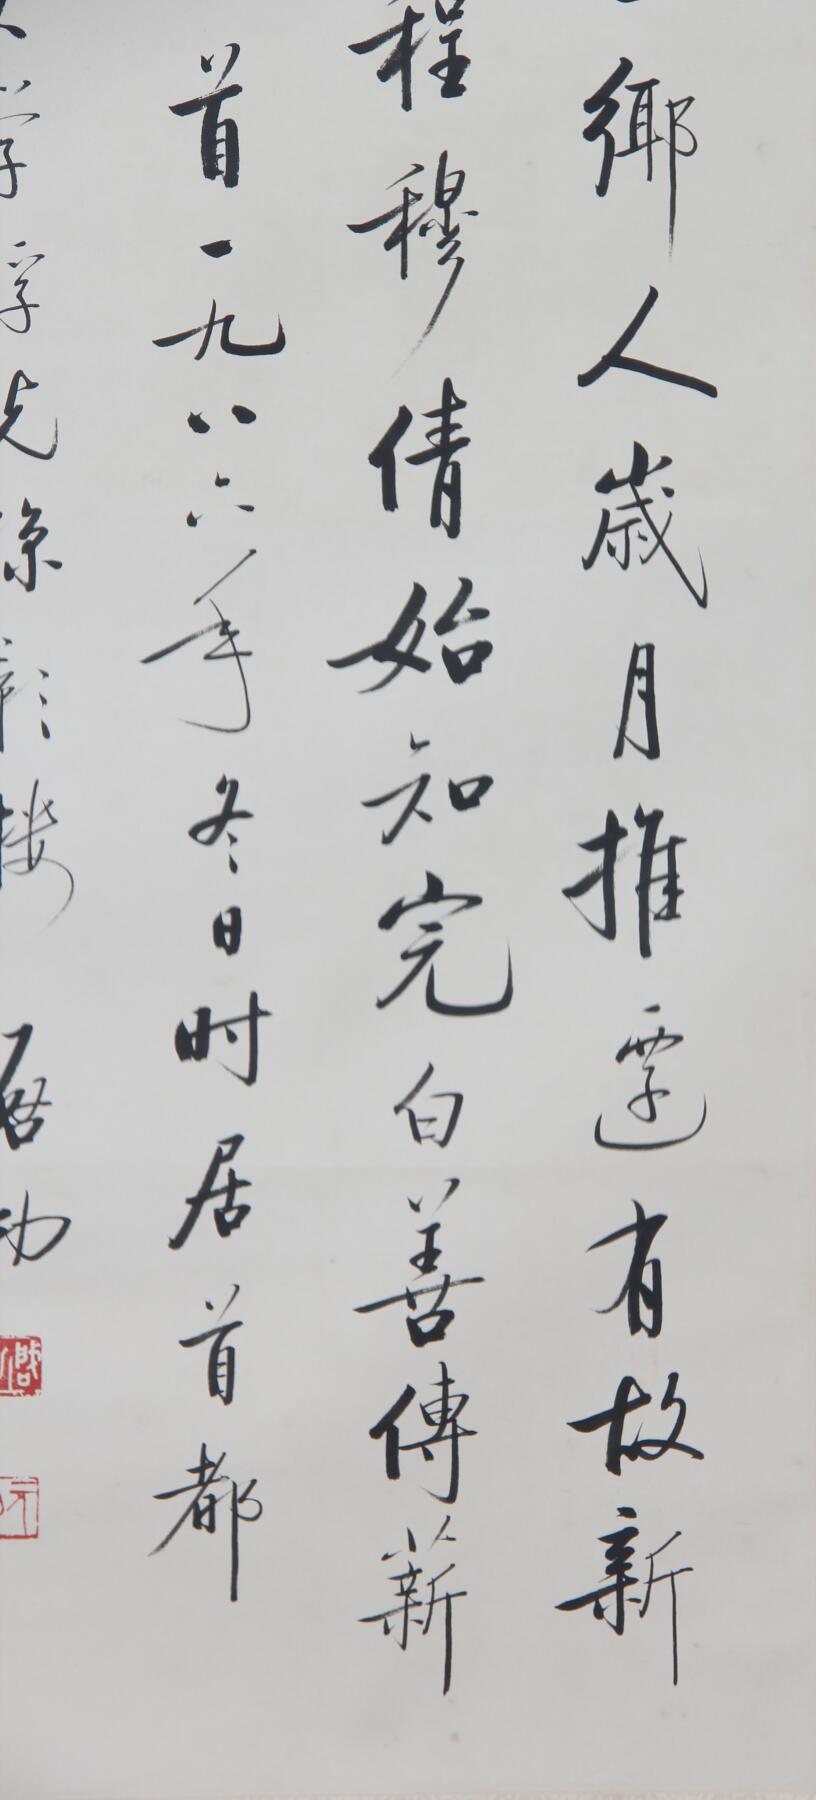 鄉人歲月推遷有故新
程穆倩始知完白善傳薪
首一九八六年冬日时居首都
學浮光掠影樓 啓功